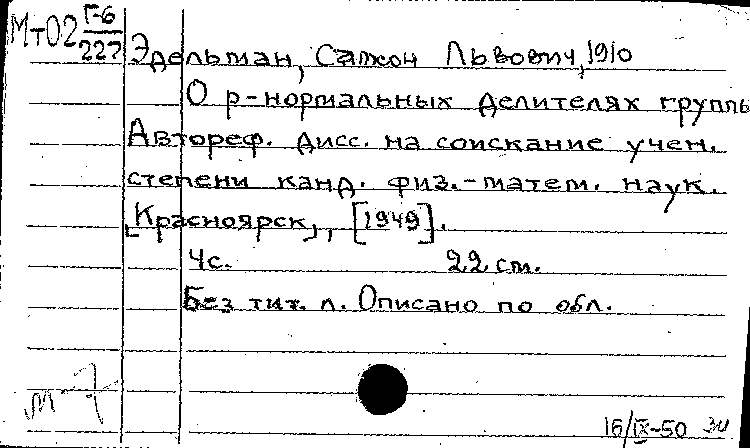 Мт02 Г-6/227
Эдельман, Самсон Львович, 1910
О р-нормальных делителях группы
Автореф. дисс. на соискание учен.
степени канд. физ.-матем. наук.
[Красноярск], [1949].
4с. 22 см.
Без тит. л. Описано по обл.
м-7
16/IX-50